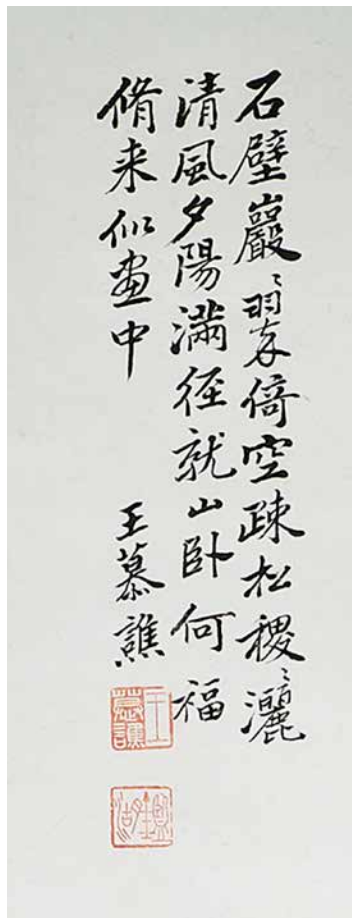 石壁巖〻翠倚空疎松稷〻灑
清風夕陽滿径就山卧何福
脩来似畫中
王慕譙
王慕譙